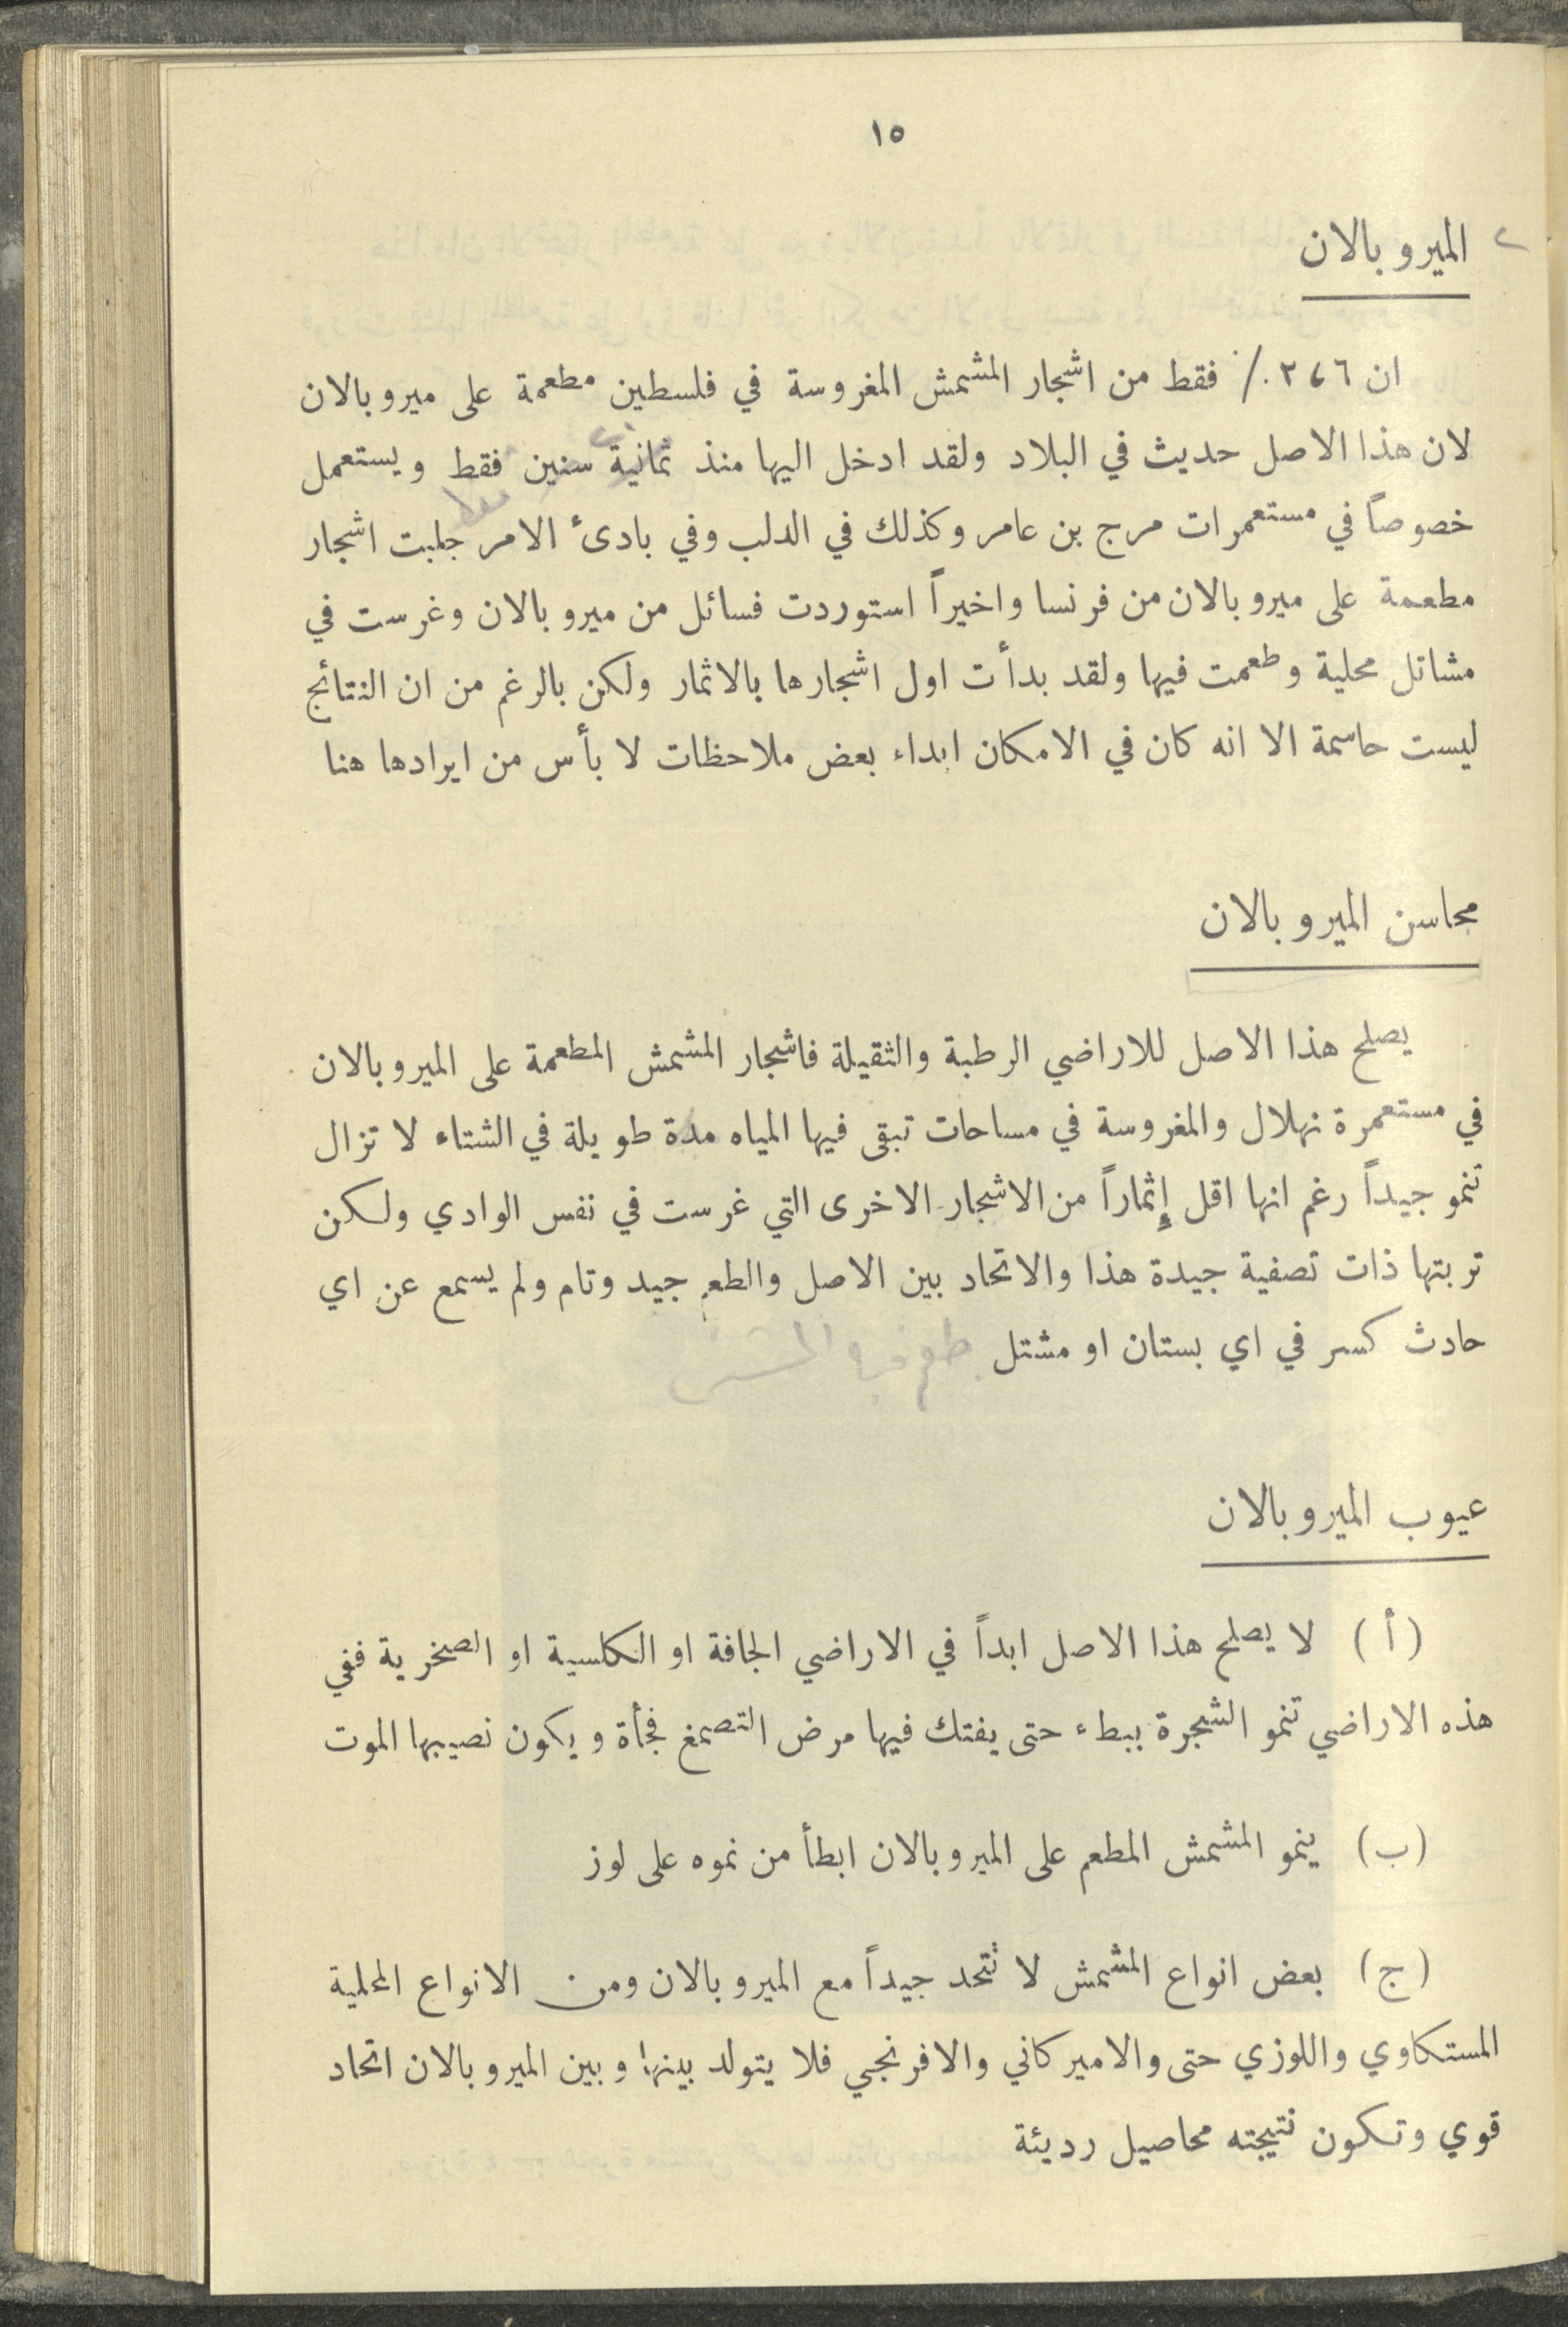 ١٥
٢ الميروبالان
ان ٢،٦ ٪ فقط من اشجار المشمش المغروسة في فلسطين مطعمة على ميروبالان
لان هذا الاصل حديث في البلاد ولقد ادخل اليها منذ ثمانية سنين فقط ويستعمل
خصوصاً في مستعمرات مرج بن عامر وكذلك في الدلب وفي بادئ الامر جلبت اشجار
مطعمة على ميروبالان من فرنسا واخيراً استوردت فسائل من ميروبالان وغرست في
مشاتل محلية وطعمت فيها ولقد بدأت اول اشجارها بالاثمار ولكن بالرغم من ان النتائج
ليست حاسمة الا انه كان في الامكان ابداء بعض ملاحظات لا بأس من ايرادها هنا
محاسن الميروبالان
يصلح هذا الاصل للاراضي الرطبة والثقيلة فاشجار المشمش المطعمة على الميروبالان
في مستعمرة نهلال والمغروسة في مساحات تبقى فيها المياه مدة طويلة في الشتاء لا تزال
تنمو جيداً رغم انها اقل إثماراً من الاشجار الاخرى التي غرست في نفس الوادي ولكن
تربتها ذات تصفية جيدة هذا والاتحاد بين الاصل والطعم جيد وتام ولم يسمع عن اي
حادث كسر في اي بستان او مشتل
عيوب الميروبالان
(أ) لا يصلح هذا الاصل ابداً في الاراضي الجافة او الكلسية او الصخرية ففي
هذه الاراضي تنمو الشجرة ببطء حتى يفتك فيها مرض التصمغ فجأة ويكون نصيبها الموت
(ب) ينمو المشمش المطعم على الميروبالان ابطأ من نموه على لوز
(ج) بعض انواع المشمش لا تتحد جيداً مع الميروبالان ومن الانواع المحلية
المستكاوي واللوزي حتى والاميركاني والافرنجي فلا يتولد بينها وبين الميروبالان اتحاد
قوي وتكون نتيجته محاصيل رديئة